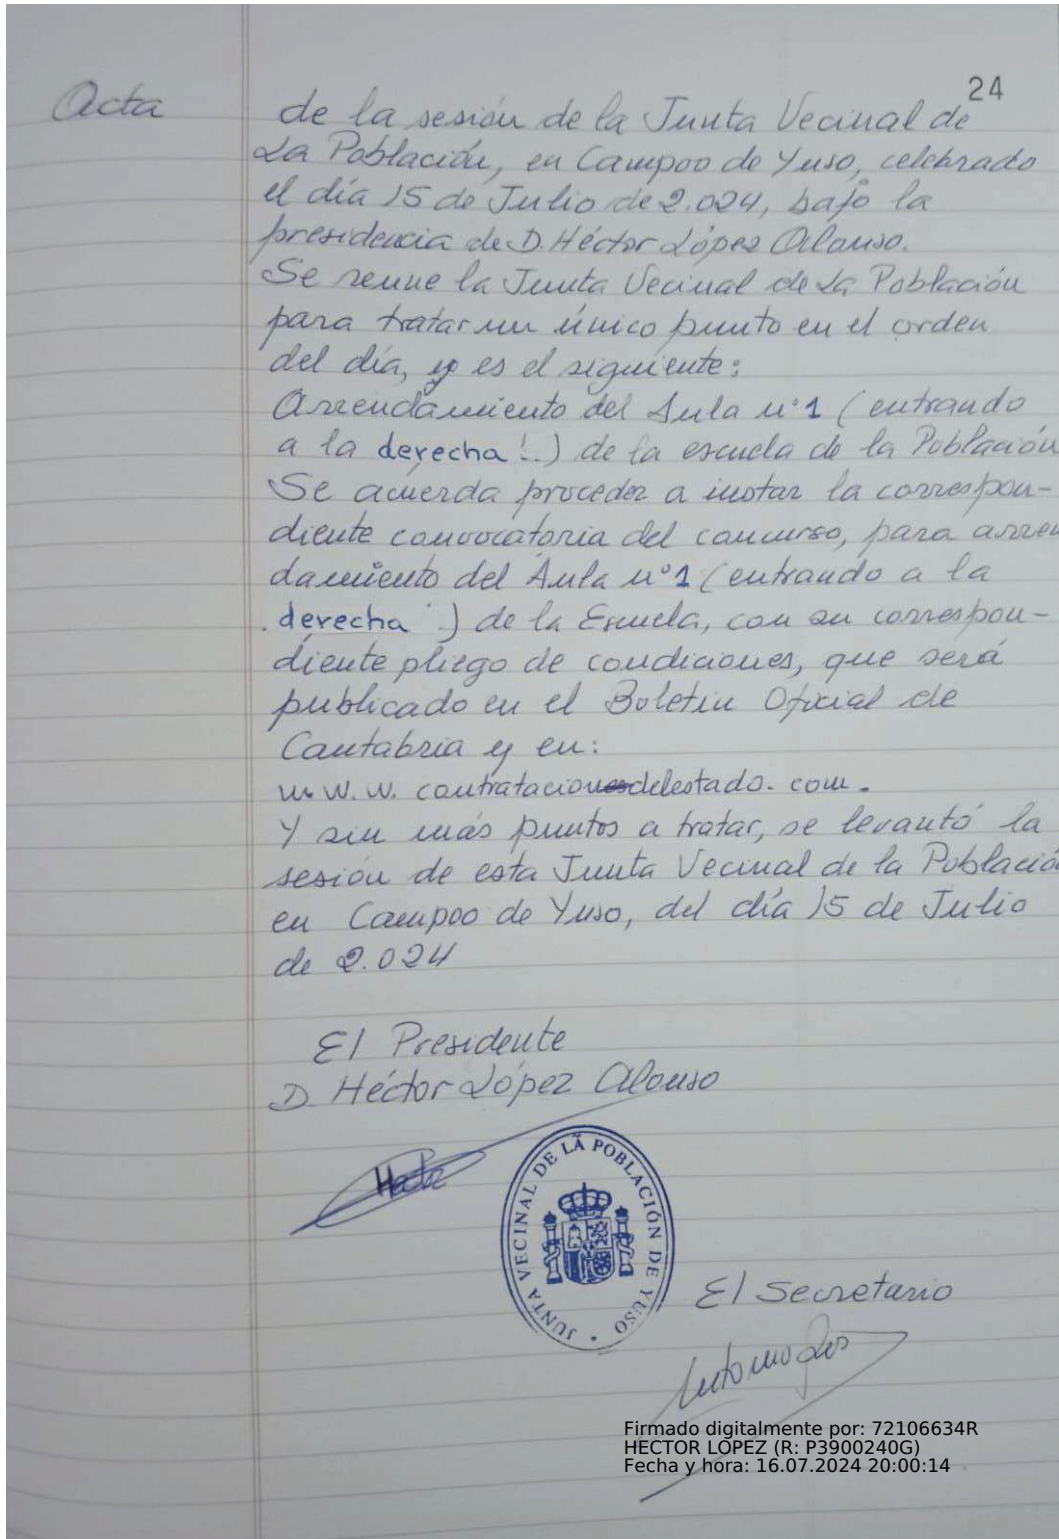 24
Acta de la sesión de la Junta Vecinal de
La Población, en Campoo de Yuso, celebrado
el día 15 de Julio de 2.024, bajo la
presidencia de D. Héctor López Alonso.
Se reune la Junta Vecinal de La Población
para tratar un único punto en el orden
del día, y es el siguiente:
Arrendamiento del Aula nº1 (entrando
a la derecha !..) de la escuela de la Población
Se acuerda proceder a instar la correspon-
diente convocatoria del concurso, para arren
damiento del Aula nº1 (entrando a la
. derecha .) de la Escuela, con su correspon-
diente pliego de condiciones, que será
publicado en el Boletin Oficial de
Cantabria y en:
w.w.w. contrataciondelestado. com.
Y sin más puntos a tratar, se levantó la
sesión de esta Junta Vecinal de la Población
en Campoo de Yuso, del día 15 de Julio
de 2.024
El Presidente
D. Héctor López Alonso
JUNTA VECINAL DE LA POBLACIÓN DE YUSO
El Secretario
Firmado digitalmente por: 72106634R
HECTOR LÓPEZ (R: P3900240G)
Fecha y hora: 16.07.2024 20:00:14